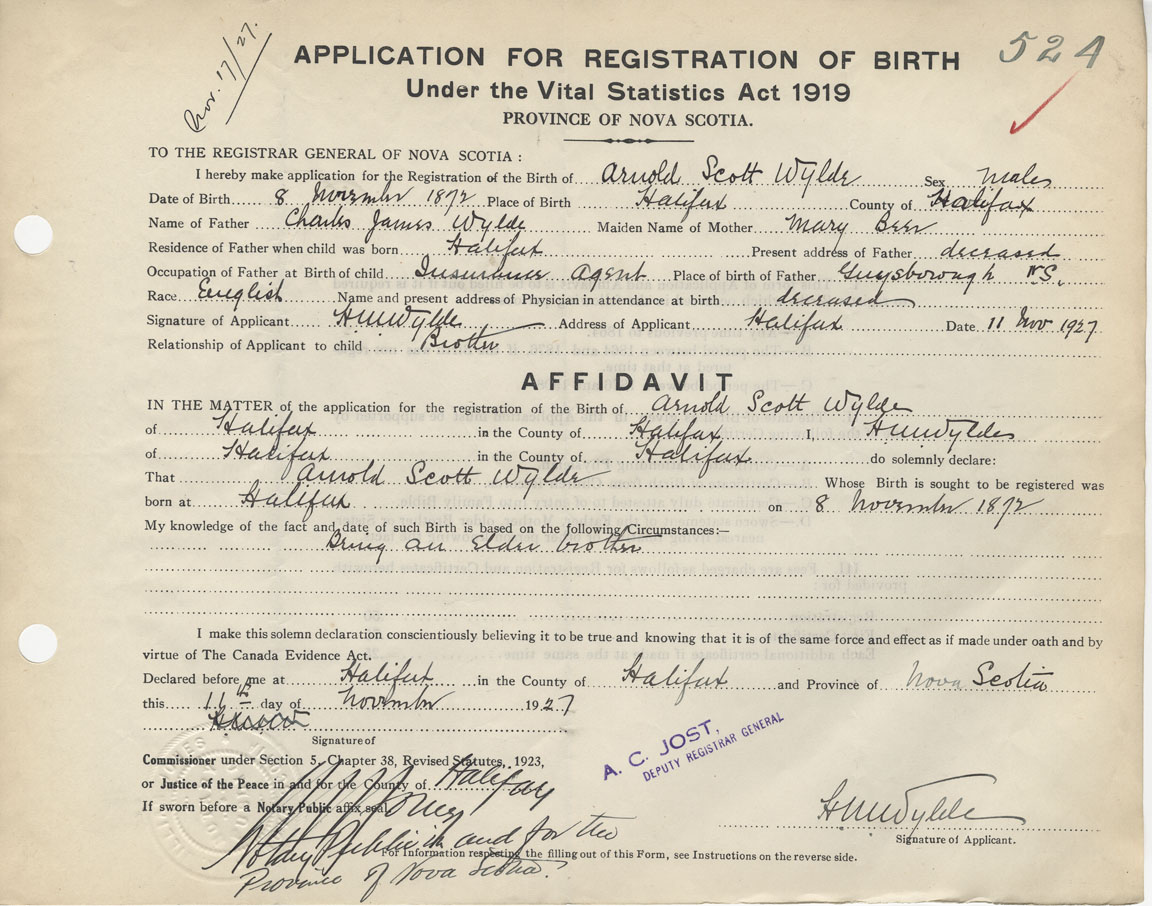 Nov. 17/27.
524
APPLICATION FOR REGISTRATION OF BIRTH
Under the Vital Statistics Act 1919
PROVINCE OF NOVA SCOTIA.
TO THE REGISTRAR GENERAL OF NOVA SCOTIA:
I hereby make application for the Registration of the Birth of Arnold Scott Wylde Sex Male
Date of Birth 8 November 1872 Place of Birth Halifax County of Halifax
Name of Father Charles James Wylde Maiden Name of Mother Mary Beer
Residence of Father when child was born Halifax Present address of Father deceased
Occupation of Father at Birth of child Insurance Agent Place of birth of Father Guysborough N.S.
Race English Name and present address of Physician in attendance at birth deceased
Signature of Applicant HMWylde Address of Applicant Halifax Date 11 Nov 1927
Relationship of Applicant to child Brother
AFFIDAVIT
IN THE MATTER of the application for the registration of the Birth of Arnold Scott Wylde
of Halifax in the County of Halifax I, HMWylde
of Halifax in the County of Halifax do solemnly declare:
That Arnold Scott Wylde Whose Birth is sought to be registered was
born at Halifax on 8 November 1872
My knowledge of the fact and date of such Birth is based on the following Circumstances:—
Being an Elder brother
I make this solemn declaration conscientiously believing it to be true and knowing that it is of the same force and effect as if made under oath and by
virtue of The Canada Evidence Act.
Declared before me at Halifax in the County of Halifax and Province of Nova Scotia
this 16th day of November 1927
Signature of
Commissioner under Section 5, Chapter 38, Revised Statutes, 1923,
or Justice of the Peace in and for the County of Halifax
If sworn before a Notary Public affix seal
A. C. JOST,
DEPUTY REGISTRAR GENERAL
HMWylde
Signature of Applicant.
Notary Public in and for the
Province of Nova Scotia.
For Information respecting the filling out of this Form, see Instructions on the reverse side.